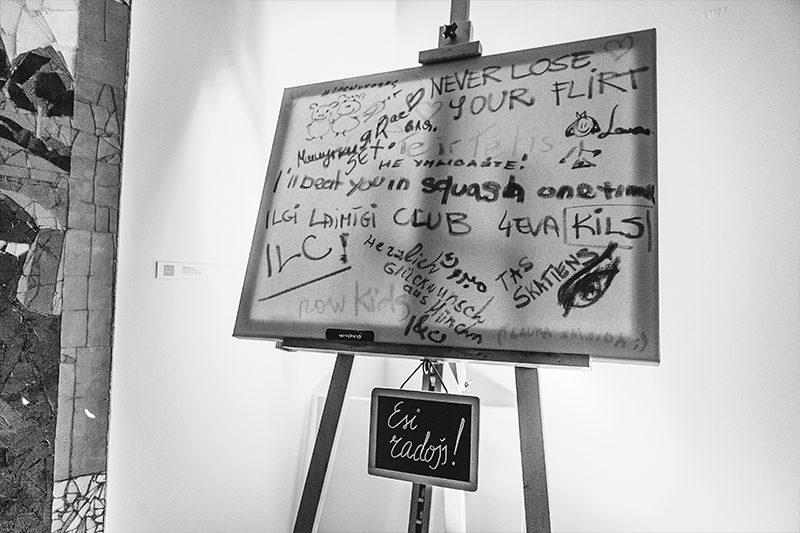 NEVER LOSE
YOUR FLIRT
Laura
Te ir Tētis
НЕ УНЫВАЙТЕ!
I'll beat you in squash one time
ILGI LAIMĪGI CLUB 4EVA KILS
ILC!
Herzlich
Glückwunsch
aus München
TAS
SKATIENS
now kids
(! LAURA SMAIDA :)
Esi
radošs!